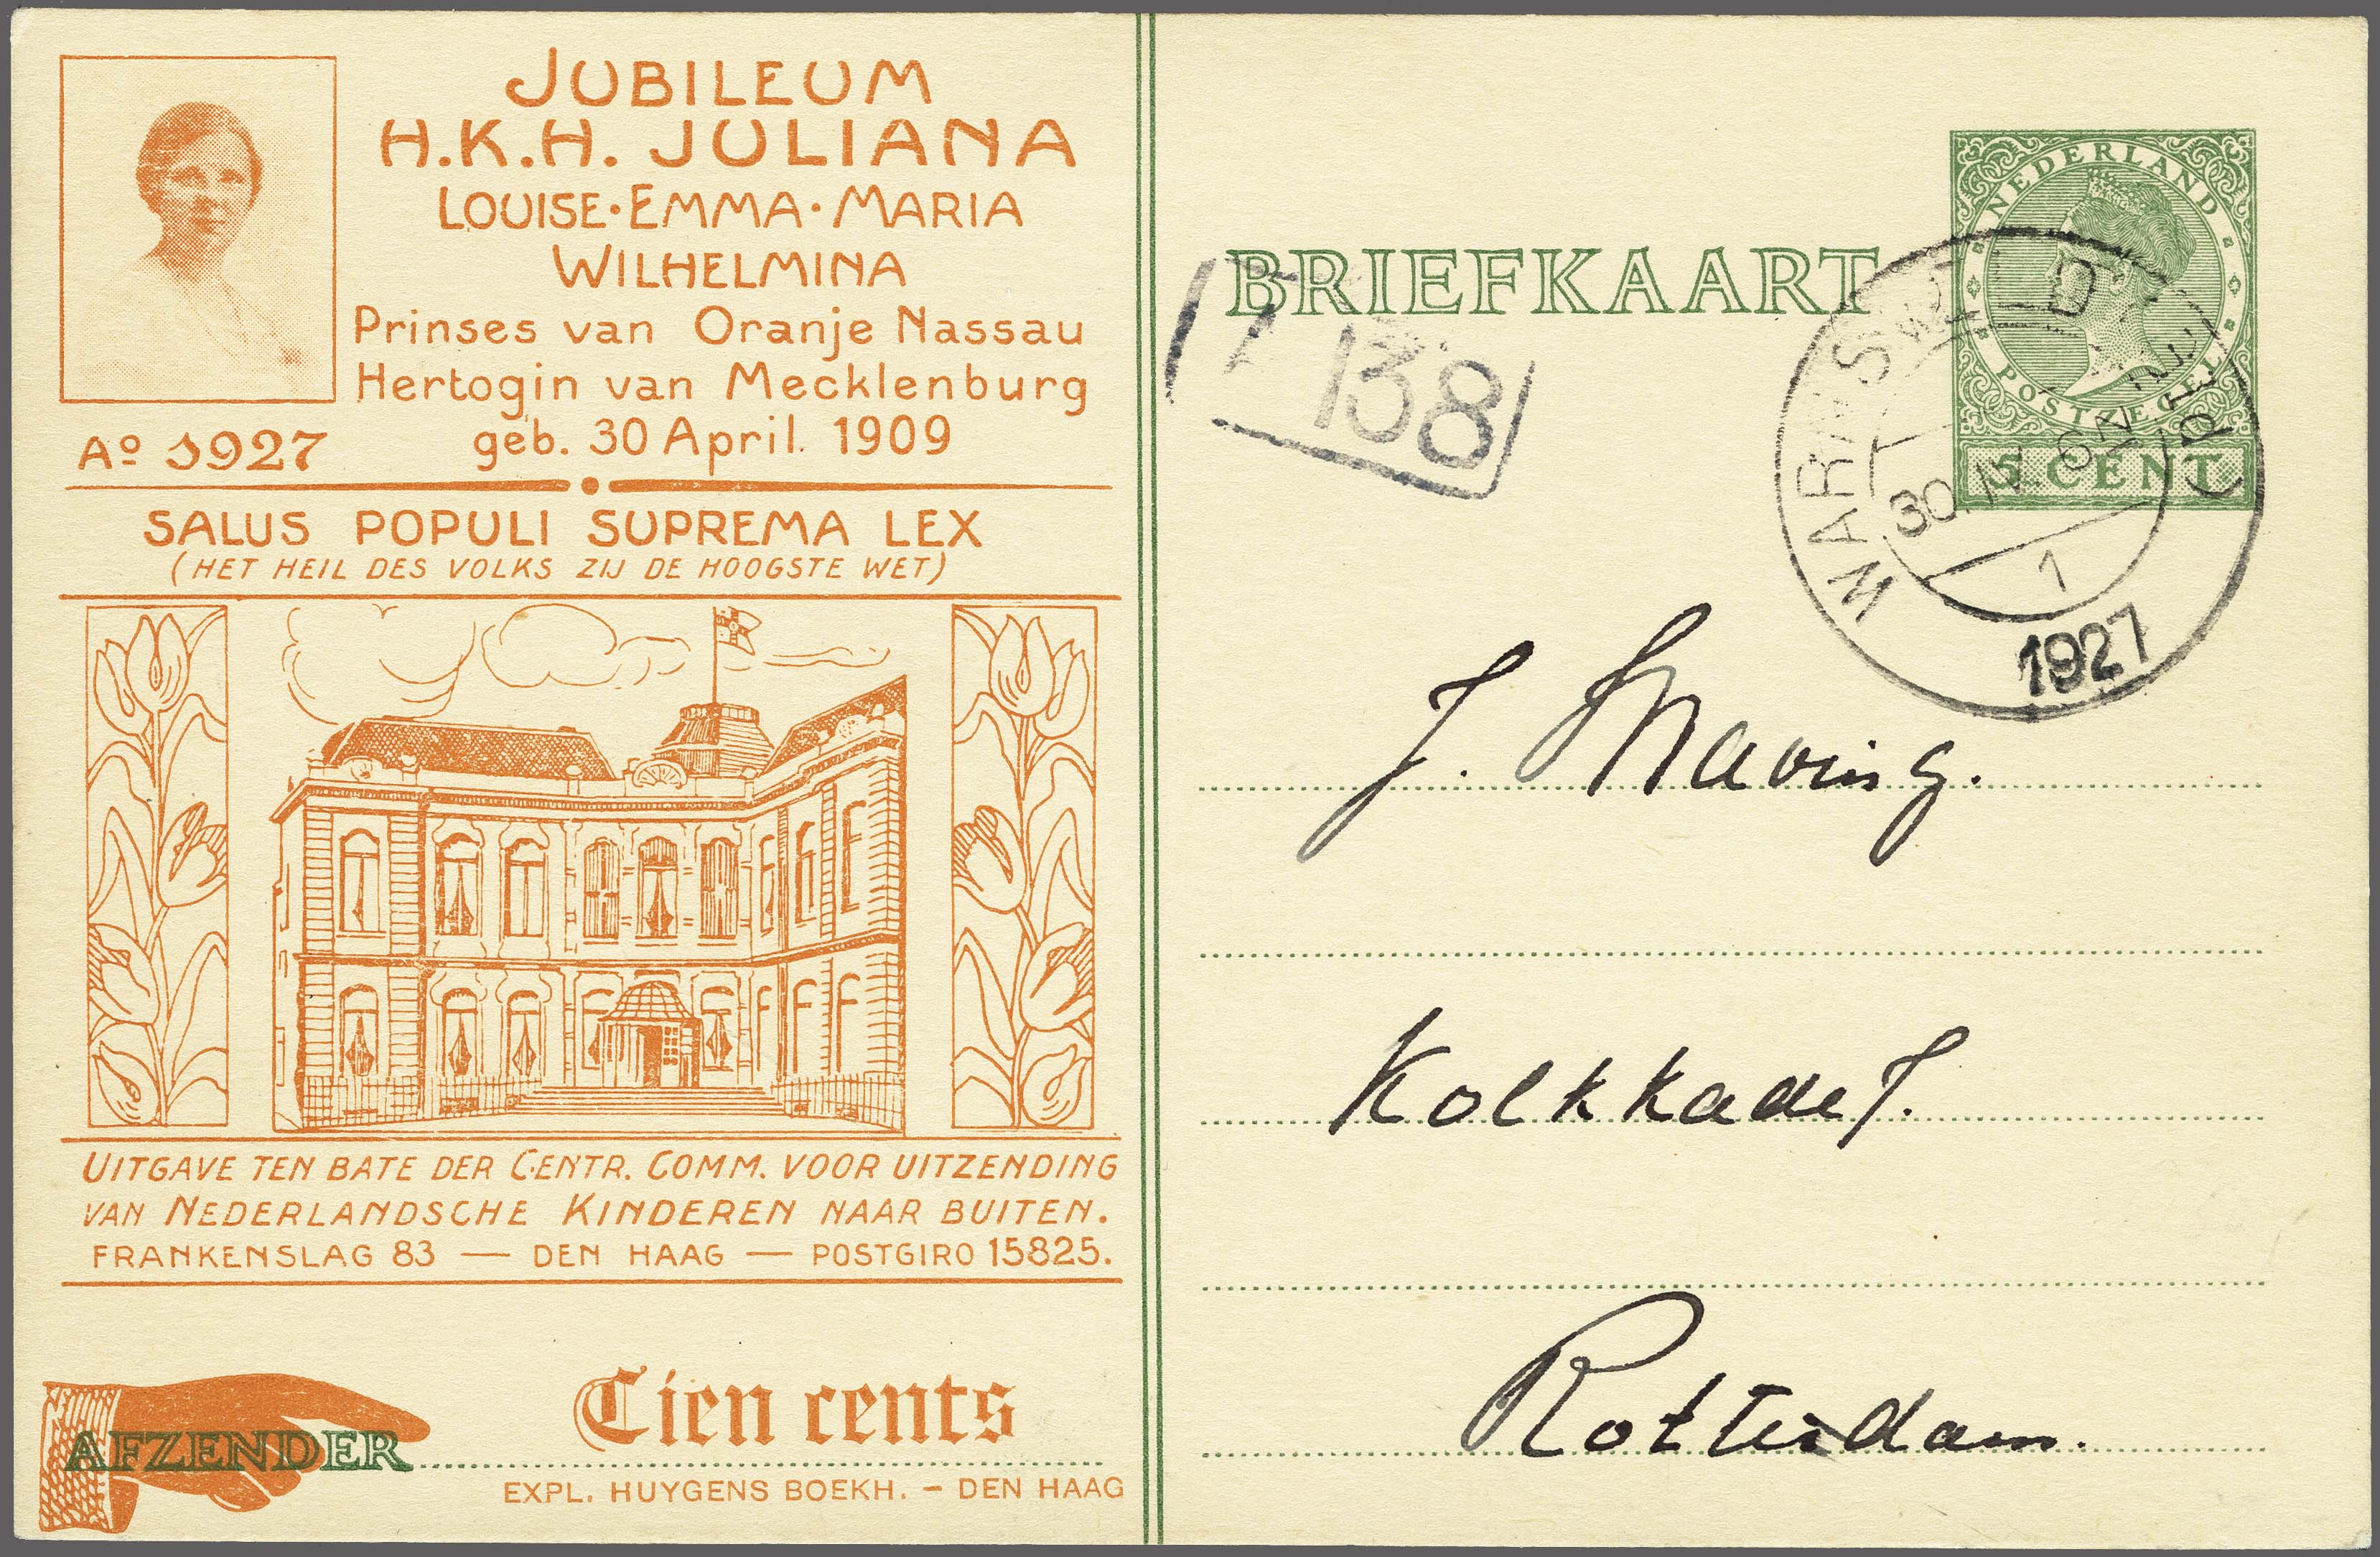 JUBILEUM
H.K.H. JULIANA
LOUISE·EMMA·MARIA
WILHELMINA
Prinses van Oranje Nassau
Hertogin van Mecklenburg
geb. 30 April. 1909
Aº 1927
SALUS POPULI SUPREMA LEX
(HET HEIL DES VOLKS ZIJ DE HOOGSTE WET)
UITGAVE TEN BATE DER CENTR. COMM. VOOR UITZENDING
VAN NEDERLANDSCHE KINDEREN NAAR BUITEN.
FRANKENSLAG 83 — DEN HAAG — POSTGIRO 15825.
Tien cents
AFZENDER
EXPL. HUYGENS BOEKH. – DEN HAAG
BRIEFKAART
NEDERLAND
POSTZEGEL
5 CENT
138
30 IV
1
1927
J.
Kolkkade
Rotterdam.